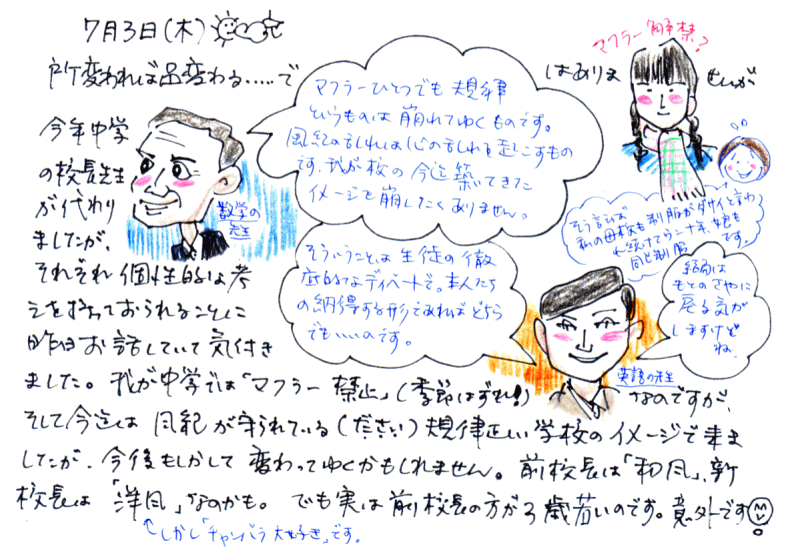 7月3日(木)
所変われば品変わる.....で
はありませんが
マフラー解禁?
今年中学
の校長先生
が代わり
ましたが、
それぞれ個性的な考
えを持っておられることに
昨日お話していて気付き
ました。我が中学では「マフラー禁止」(季節はずれ!)なのですが、
そして今迄は風紀が守られている(ださい)規律正しい学校のイメージで来ま
したが、今後もしかして変わってゆくかもしれません。前校長は「和風」、新
校長は「洋風」なのかも。でも実は前校長の方が3歳若いのです。意外です
しかし「チャンバラ大好き」です。
マフラーひとつでも規律
というものは崩れてゆくものです。
風紀の乱れは心の乱れを起こすもの
です。我が校の今迄築いてきた
イメージを崩したくありません。
数学の
先生
そういうことは生徒の徹
底的なディベートで。本人たち
の納得する形であればどちら
でもいいのです。
英語の先生
結局は
もとのさやに
戻る気が
しますけど
ね。
そう言えば
私の母校も制服がダサイと言わ
れ続けてウン十年、娘も
同じ制服
です。